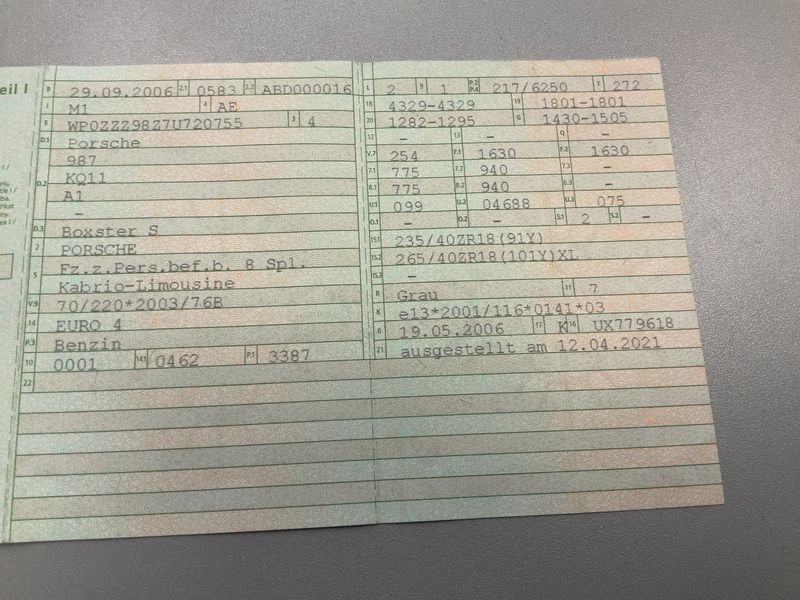 eil I
B 29.09.2006 2.1 0583 2.2 ABD000016
J M1 4 AE
E WP0ZZZ98Z7U720755 3 4
D.1 Porsche
987
D.2 KQ11
A1
-
D.3 Boxster S
2 PORSCHE
5 Fz.z.Pers.bef.b. 8 Spl.
Kabrio-Limousine
V.9 70/220*2003/76B
14 EURO 4
P.3 Benzin
10 0001 14.1 0462 P.1 3387
22
L 2 9 1 P.2 P.4 217/6250 T 272
18 4329-4329 19 1801-1801
20 1282-1295 G 1430-1505
12 - 13 - Q -
V.7 254 F.1 1630 F.2 1630
7.1 775 7.2 940 7.3 -
8.1 775 8.2 940 8.3 -
U.1 099 U.2 04688 U.3 075
O.1 - O.2 - S.1 2 S.2 -
15.1 235/40ZR18(91Y)
15.2 265/40ZR18(101Y)XL
15.3 -
R Grau 11 7
K e13*2001/116*0141*03
6 19.05.2006 17 K 16 UX779618
21 ausgestellt am 12.04.2021